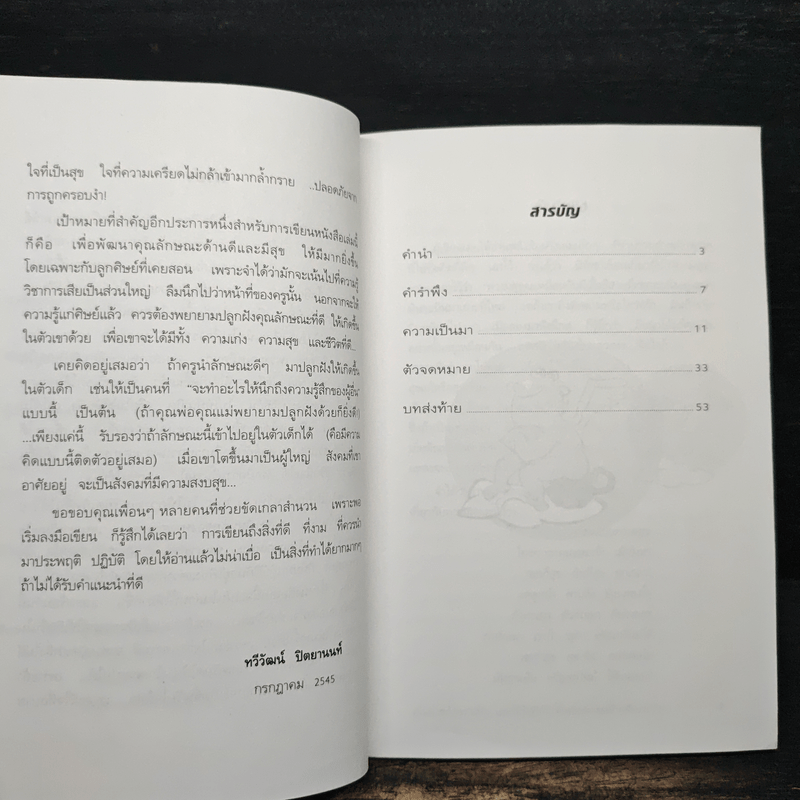 ใจที่เป็นสุข ใจที่ความเครียดไม่กล้าเข้ามากล้ำกราย ..ปลอดภัยจาก
การถูกครอบงำ!
เป้าหมายที่สำคัญอีกประการหนึ่งสำหรับการเขียนหนังสือเล่มนี้
ก็คือ เพื่อพัฒนาคุณลักษณะด้านดีและมีสุข ให้มีมากยิ่งขึ้น
โดยเฉพาะกับลูกศิษย์ที่เคยสอน เพราะจำได้ว่ามักจะเน้นไปที่ความรู้
วิชาการเสียเป็นส่วนใหญ่ ลืมนึกไปว่าหน้าที่ของครูนั้น นอกจากจะให้
ความรู้แก่ศิษย์แล้ว ควรต้องพยายามปลูกฝังคุณลักษณะที่ดี ให้เกิดขึ้น
ในตัวเขาด้วย เพื่อเขาจะได้มีทั้ง ความเก่ง ความสุข และชีวิตที่ดี..
เคยคิดอยู่เสมอว่า ถ้าครูนำลักษณะดีๆ มาปลูกฝังให้เกิดขึ้น
ในตัวเด็ก เช่นให้เป็นคนที่ "จะทำอะไรให้นึกถึงความรู้สึกของผู้อื่น"
แบบนี้ เป็นต้น (ถ้าคุณพ่อคุณแม่พยายามปลูกฝังด้วยก็ยิ่งดี)
...เพียงแค่นี้ รับรองว่าถ้าลักษณะนี้เข้าไปอยู่ในตัวเด็กได้ (คือมีความ
คิดแบบนี้ติดตัวอยู่เสมอ) เมื่อเขาโตขึ้นมาเป็นผู้ใหญ่ สังคมที่เขา
อาศัยอยู่ จะเป็นสังคมที่มีความสงบสุข...
ขอขอบคุณเพื่อนๆ หลายคนที่ช่วยขัดเกลาสำนวน เพราะพอ
เริ่มลงมือเขียน ก็รู้สึกได้เลยว่า การเขียนถึงสิ่งที่ดี ที่งาม ที่ควรนำ
มาประพฤติ ปฏิบัติ โดยให้อ่านแล้วไม่น่าเบื่อ เป็นสิ่งที่ทำได้ยากมากๆ
ถ้าไม่ได้รับคำแนะนำที่ดี
ทวีวัฒน์ ปิตยานนท์
กรกฎาคม 2545
สารบัญ
คำนำ 3
คำรำพึง 7
ความเป็นมา 11
ตัวจดหมาย 33
บทส่งท้าย 53